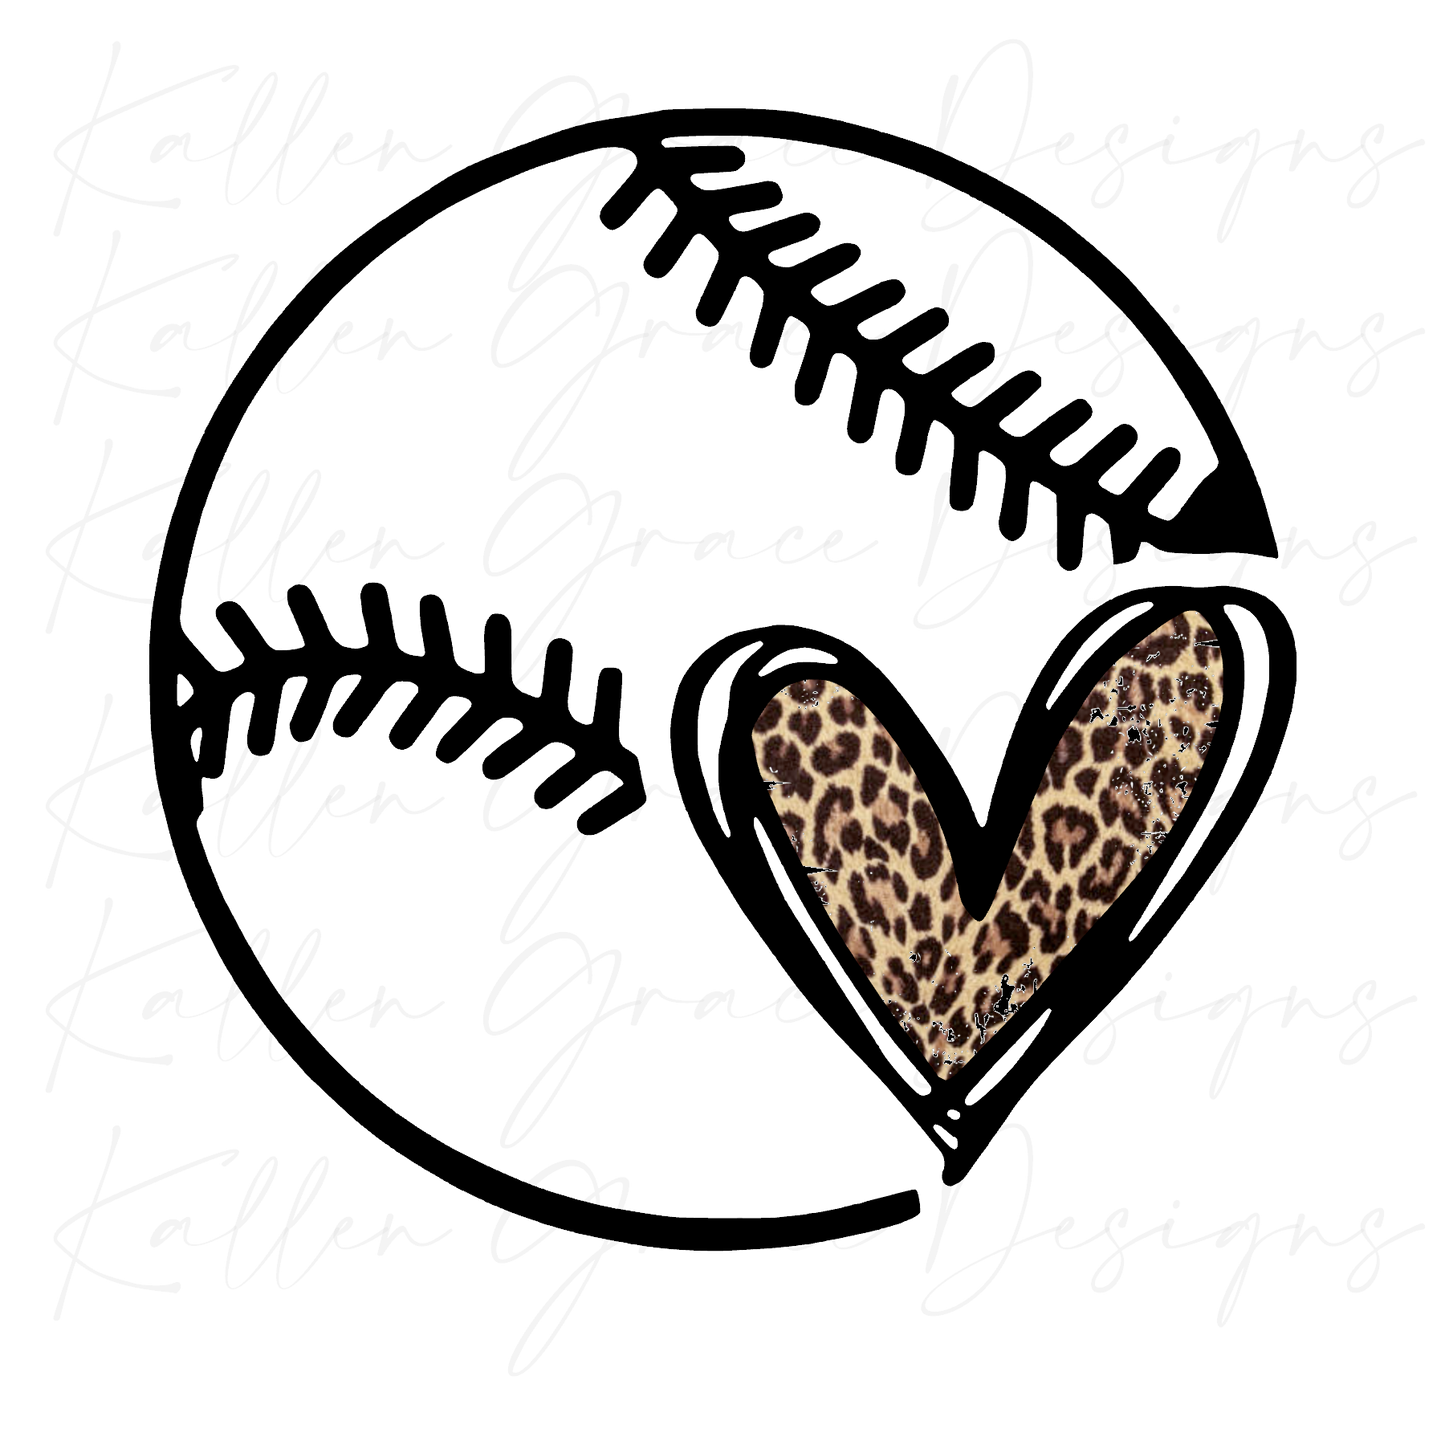 Kallen Grace Designs
Kallen Grace Designs
Kallen Grace Designs
Kallen Grace Designs
Kallen Grace Designs
Kallen Grace Designs